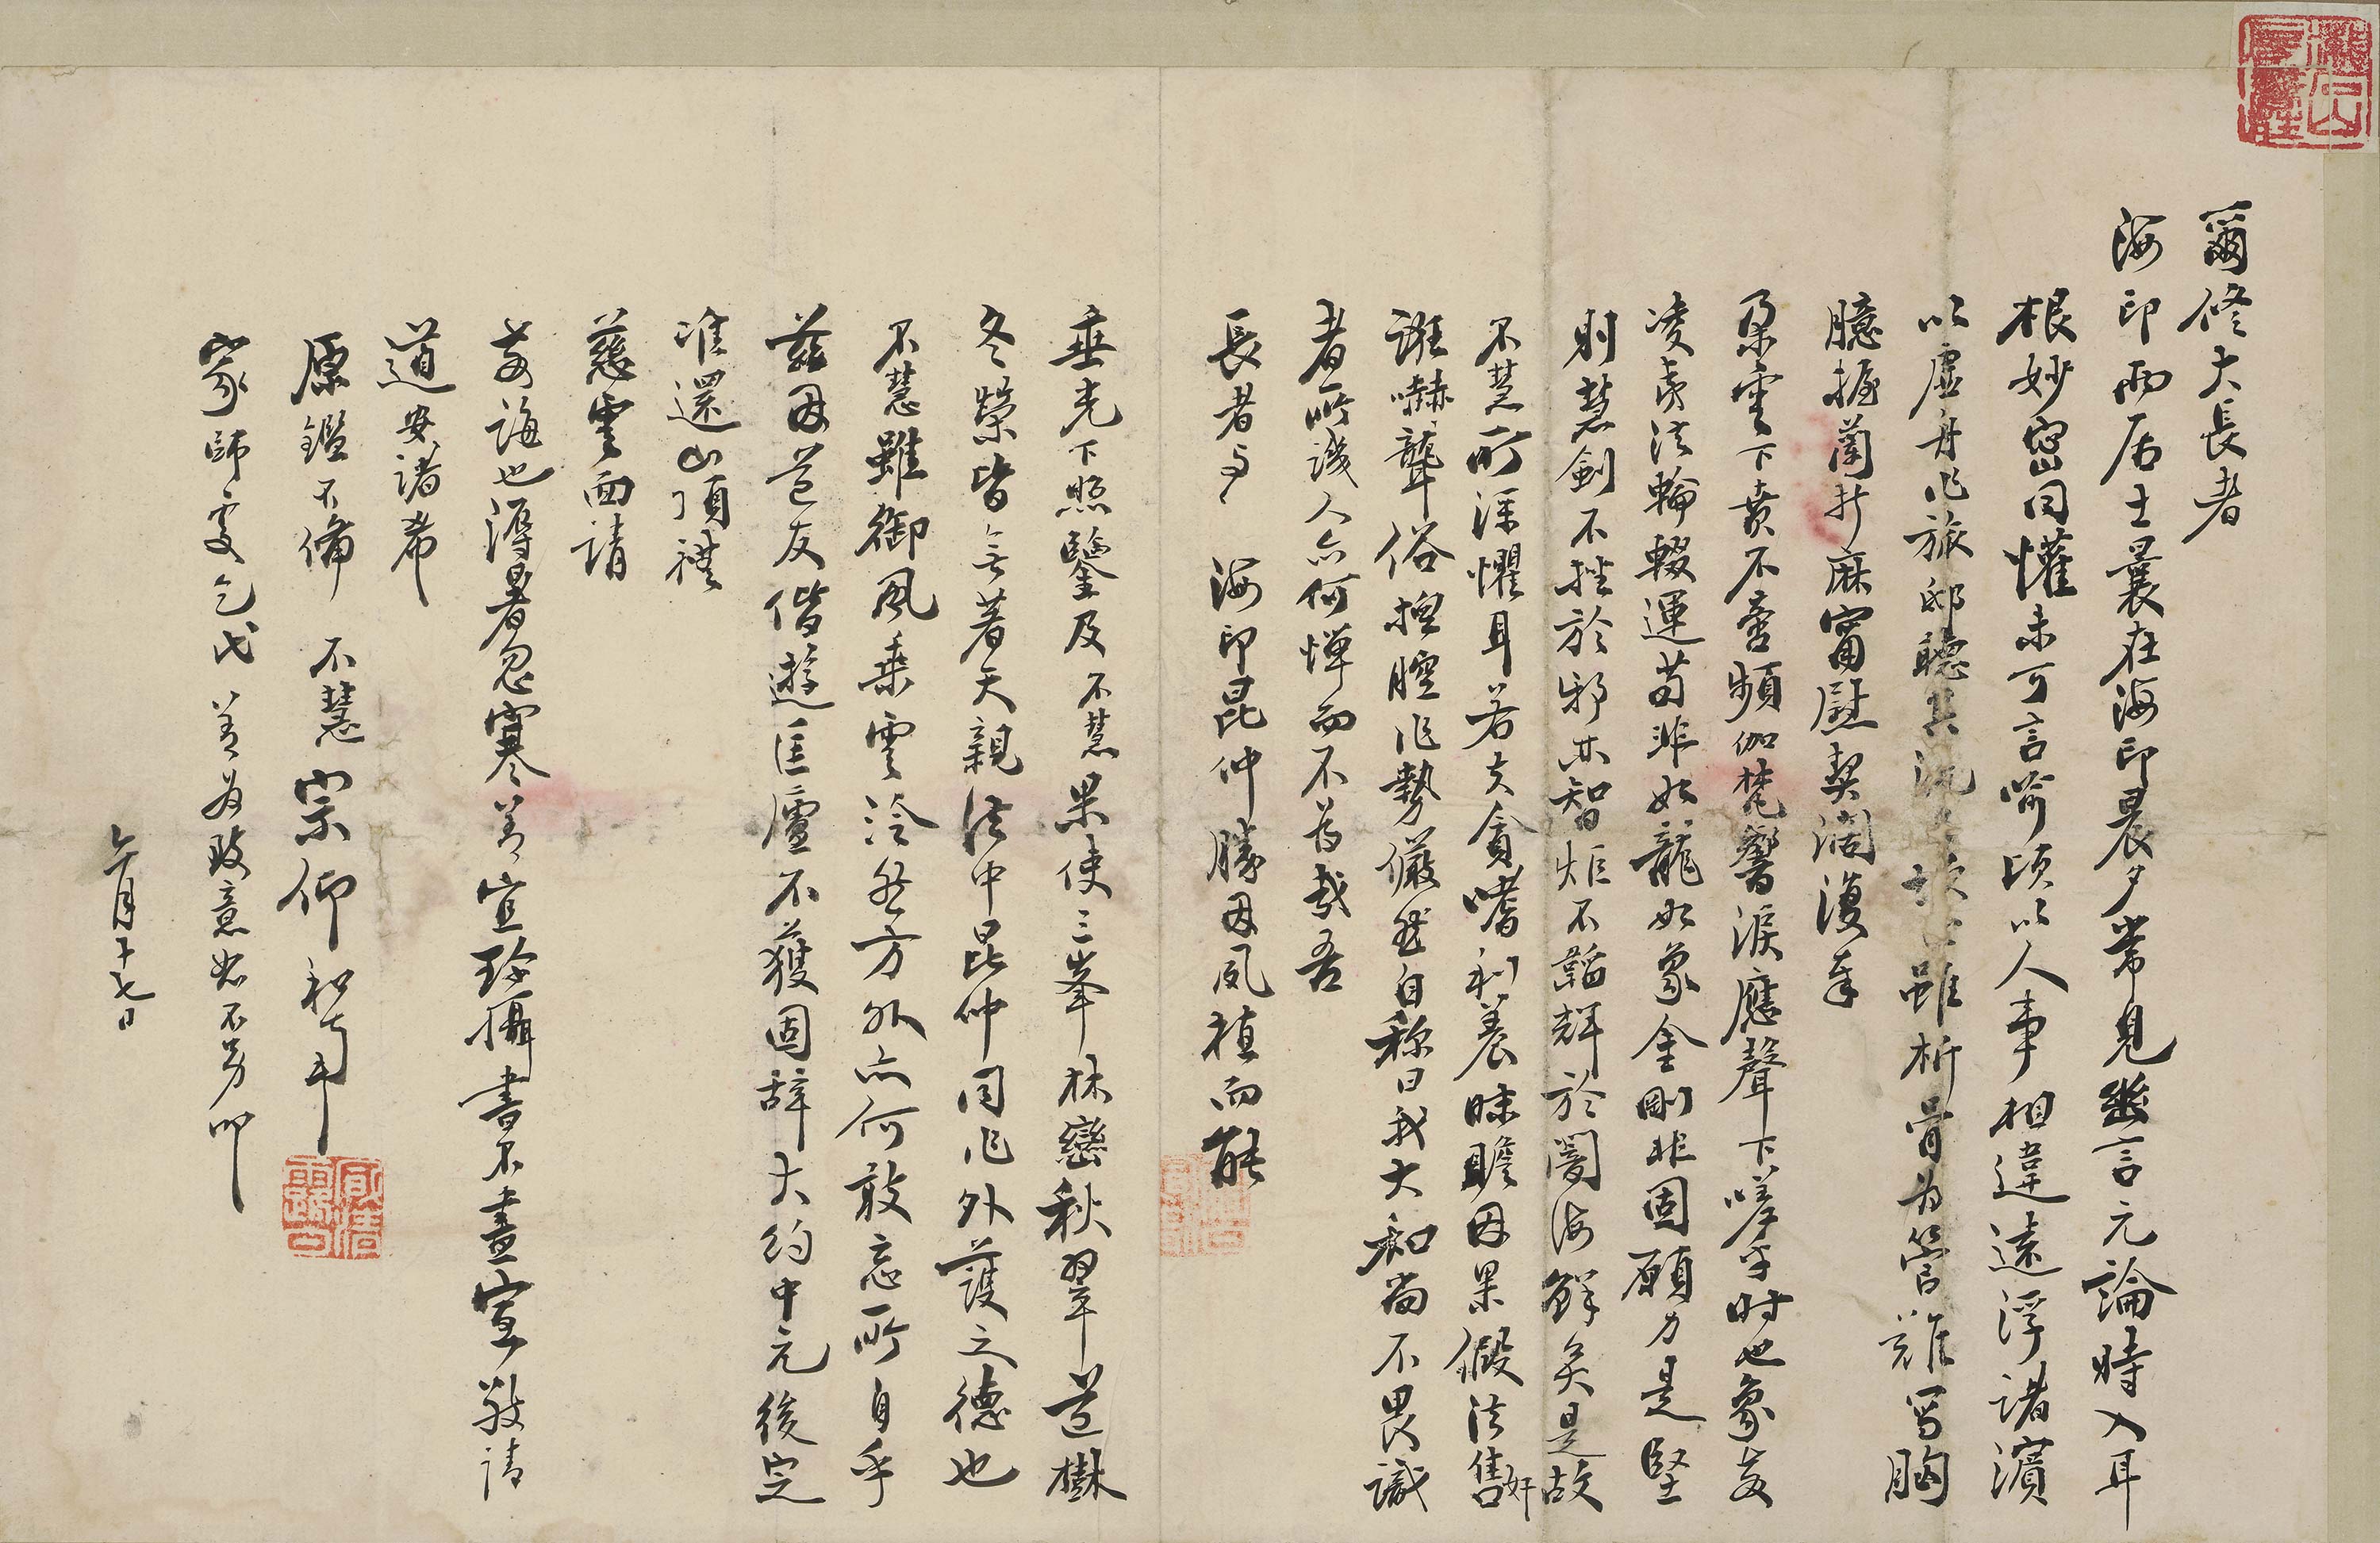 爾修大長者
海印兩居士曩在海印晨夕常見幾言元論時入耳
根妙密同懽未可言喻頃以人事相違遠浮諸濱
以虛舟作旅邸聽其 雖析骨為管難寫胸
臆握蘭折麻寗慰契闊復奉
朶雲下賁不啻頻伽梵響淚應聲下嗟乎時也象教
凌夷法輪輟運苟非如龍如象金剛非固願力是堅
則慧劍不挫於邪林智炬不韜輝於闇海鮮矣是故
不慧所深懼耳若夫貪嗜利養昧瞻因果假法售奸
誑嚇聾俗撑腔作勢儼然自称曰我大和尚不畏識
者所譏人亦何憚而不為哉吾
長者与 海印昆仲勝因夙植而能
垂光下照鑒及不慧果使三峯林巒秋翠道樹
冬榮皆無著天親法中昆仲同作外護之德也
不慧雖御風乘雲泠然方外亦何敢忘所自乎
茲因道友偕遊匡廬不獲固辞大約中元後定
准還山頂禮
慈雲面請
茲誨也溽暑忽寒善宜珍攝書不盡宣敬請
道安諸希
原鑑不備 不慧宗仰和南
家師處乞代善為致意恕不另叩
六月十七日